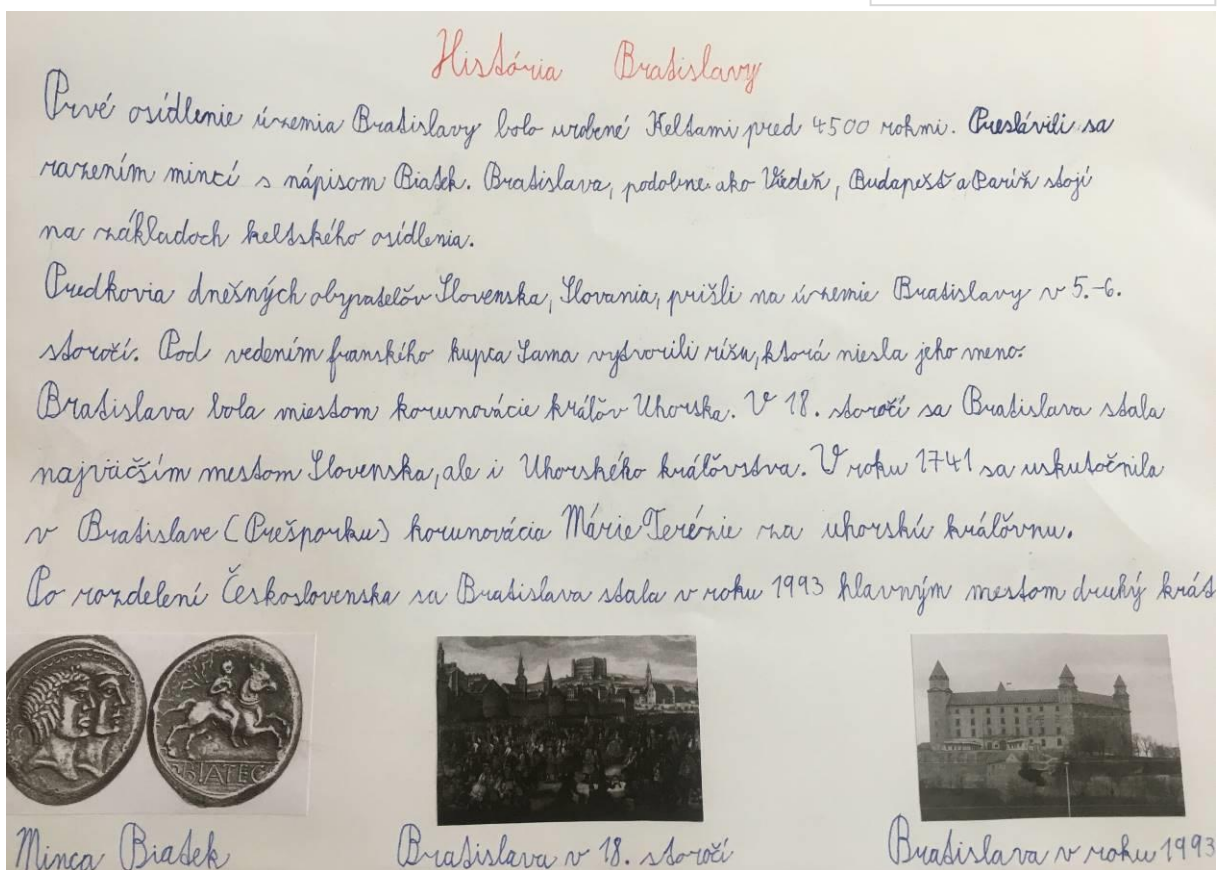 História Bratislavy
Prvé osídlenie územia Bratislavy bolo urobené Keltami pred 4500 rokmi. Preslávili sa
razením mincí s nápisom Biatek. Bratislava, podobne ako Viedeň, Budapešť a Paríž stojí
na základoch keltského osídlenia.
Predkovia dnešných obyvateľov Slovenska, Slovania, prišli na územie Bratislavy v 5.-6.
storočí. Pod vedením franského kupca Sama vytvorili ríšu, ktorá niesla jeho meno.
Bratislava bola miestom korunovácie kráľov Uhorska. V 18. storočí sa Bratislava stala
najväčším mestom Slovenska, ale i Uhorského kráľovstva. V roku 1741 sa uskutočnila
v Bratislave (Prešporku) korunovácia Márie Terézie za uhorskú kráľovnu.
Po rozdelení Československa sa Bratislava stala v roku 1993 hlavným mestom druhý krát
BIATEC
Minca Biatek
Bratislava v 18. storočí
Bratislava v roku 1993